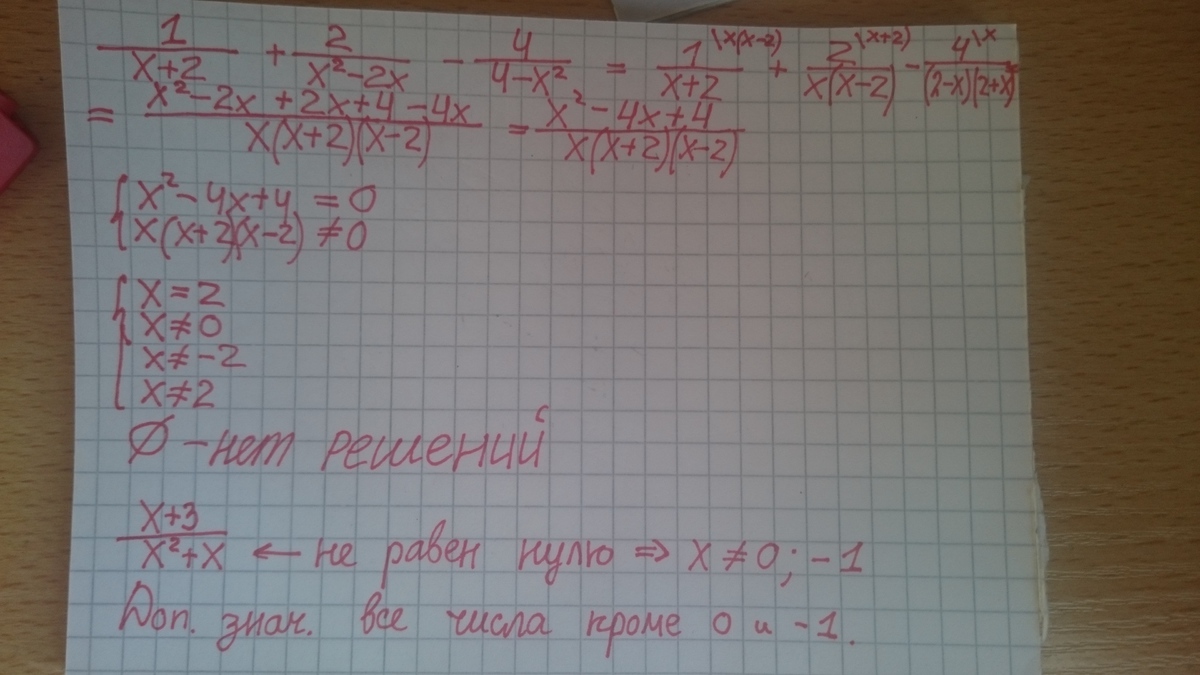 1/(x+2) + 2/(x²-2x) - 4/(4-x²) = 1\x(x-2)/(x+2) + 2\x+2)/(x(x-2)) - 4\x/((2-x)(2+x)) =
= (x²-2x+2x+4-4x)/(x(x+2)(x-2)) = (x²-4x+4)/(x(x+2)(x-2))
{ x²-4x+4 = 0
x(x+2)(x-2) ≠ 0
{ x = 2
x ≠ 0
x ≠ -2
x ≠ 2
Ø - нет решений
(x+3)/(x²+x) ← не равен нулю ⇒ x ≠ 0; -1
Доп. знач. все числа кроме 0 и -1.